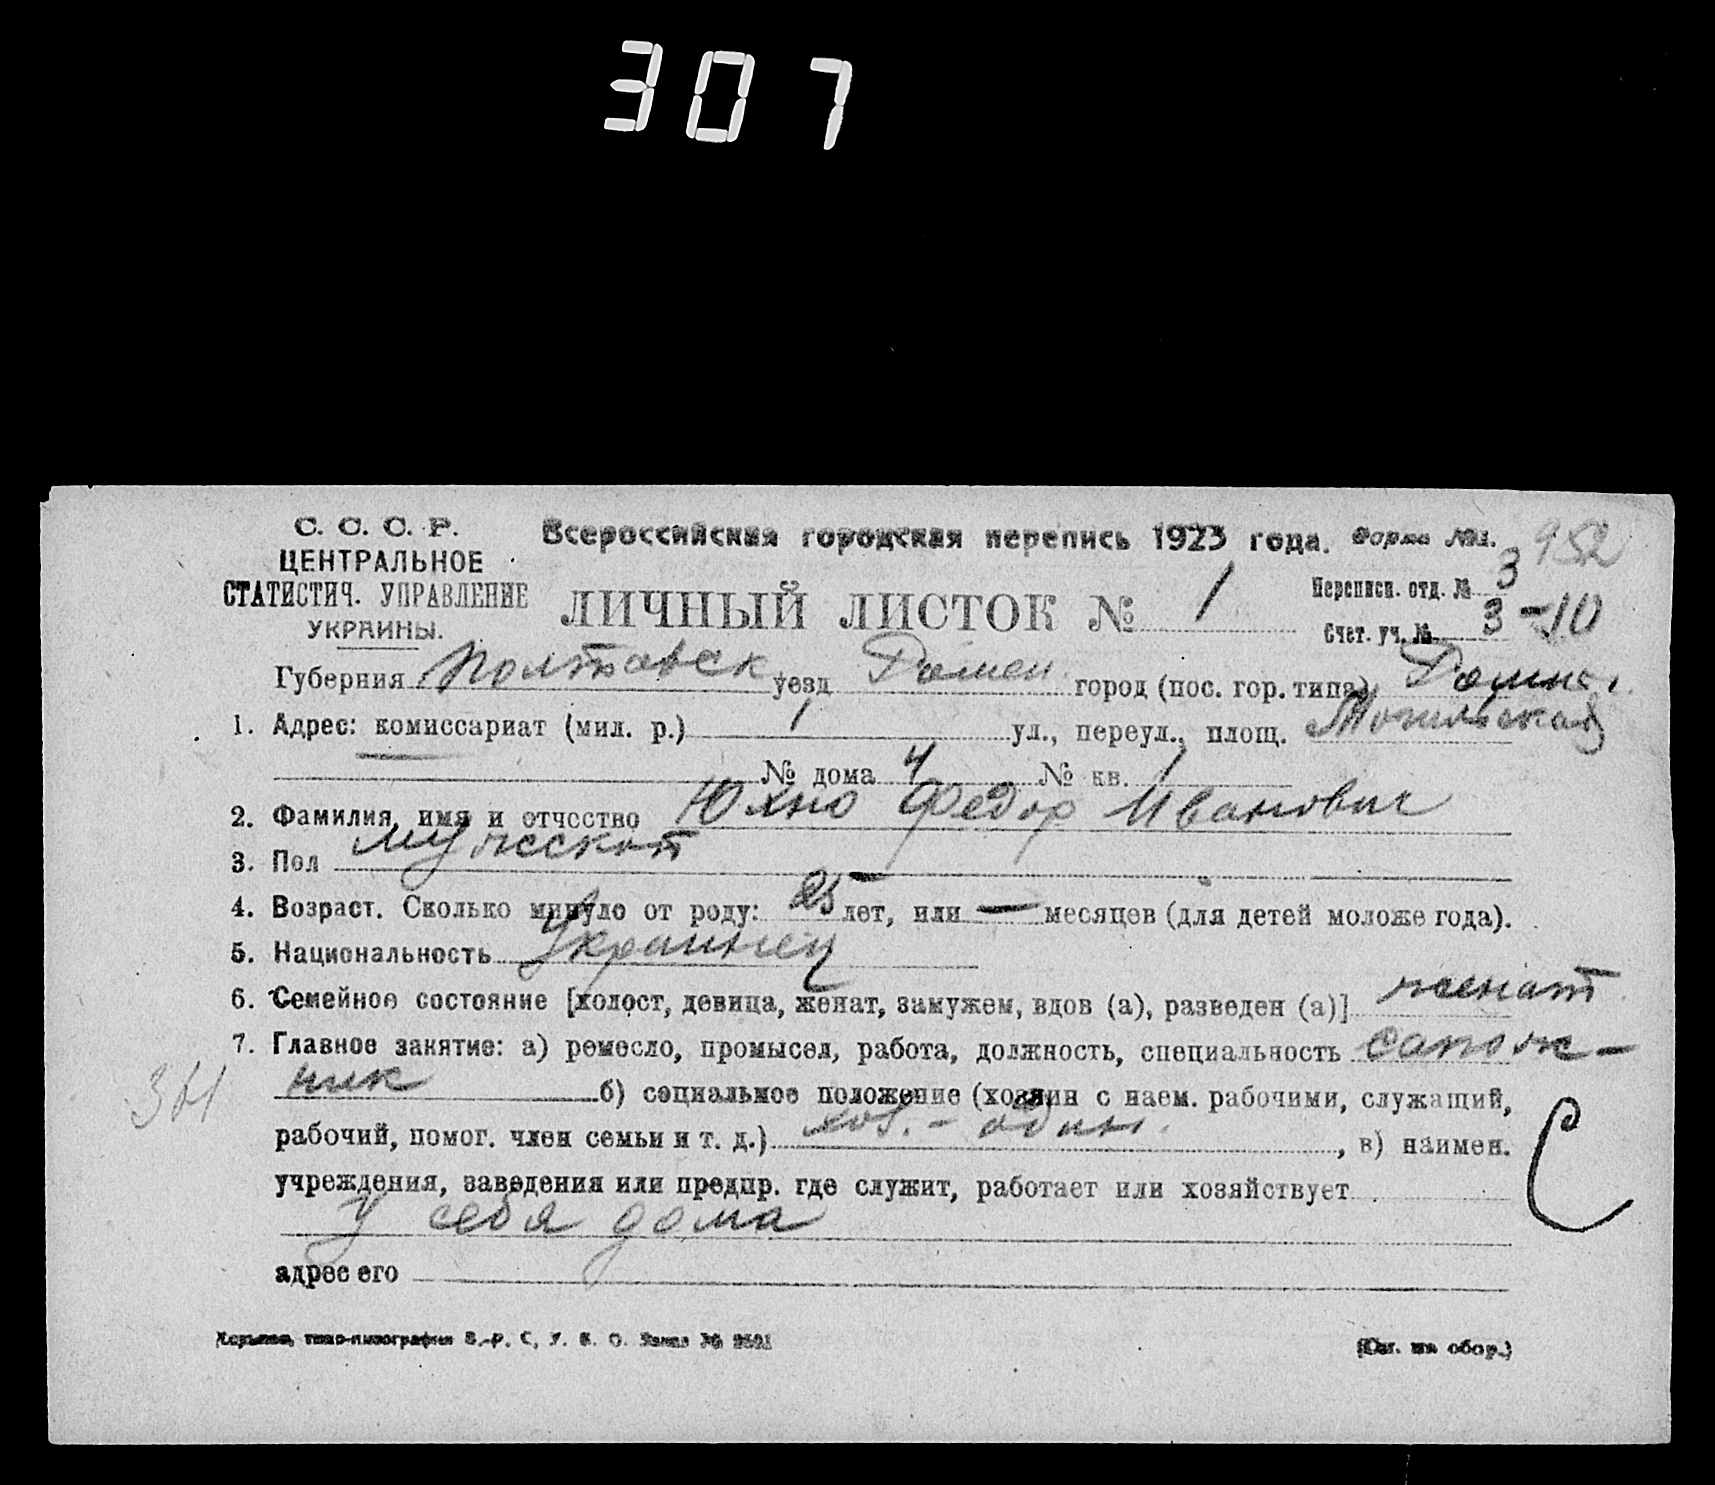 307
С. С. С. Р.
ЦЕНТРАЛЬНОЕ
СТАТИСТИЧ. УПРАВЛЕНИЕ
УКРАИНЫ.
Всероссийская городская перепись 1923 года. Форма №1. 952
ЛИЧНЫЙ ЛИСТОК № 1
Переписн. отд. № 3
Счет. уч. № 3-10
Губерния Полтавск уезд Ромен город (пос. гор. типа) Ромны
1. Адрес: комиссариат (мил. р.) 1 ул., переул., площ.
№ дома 4 № кв. 1
2. Фамилия, имя и отчество Юхно Федор Иванович
3. Пол мужской
4. Возраст. Сколько минуло от роду: 25 лет, или — месяцев (для детей моложе года).
5. Национальность Украинец
6. Семейное состояние [холост, девица, женат, замужем, вдов (а), разведен (а)] женат
7. Главное занятие: а) ремесло, промысел, работа, должность, специальность сапож-
ник б) социальное положение (хозяин с наем. рабочими, служащий,
рабочий, помог. член семьи и т. д.) хоз. - один. , в) наимен.
учреждения, заведения или предпр. где служит, работает или хозяйствует
у себя дома
адрес его
(См. на обор.)